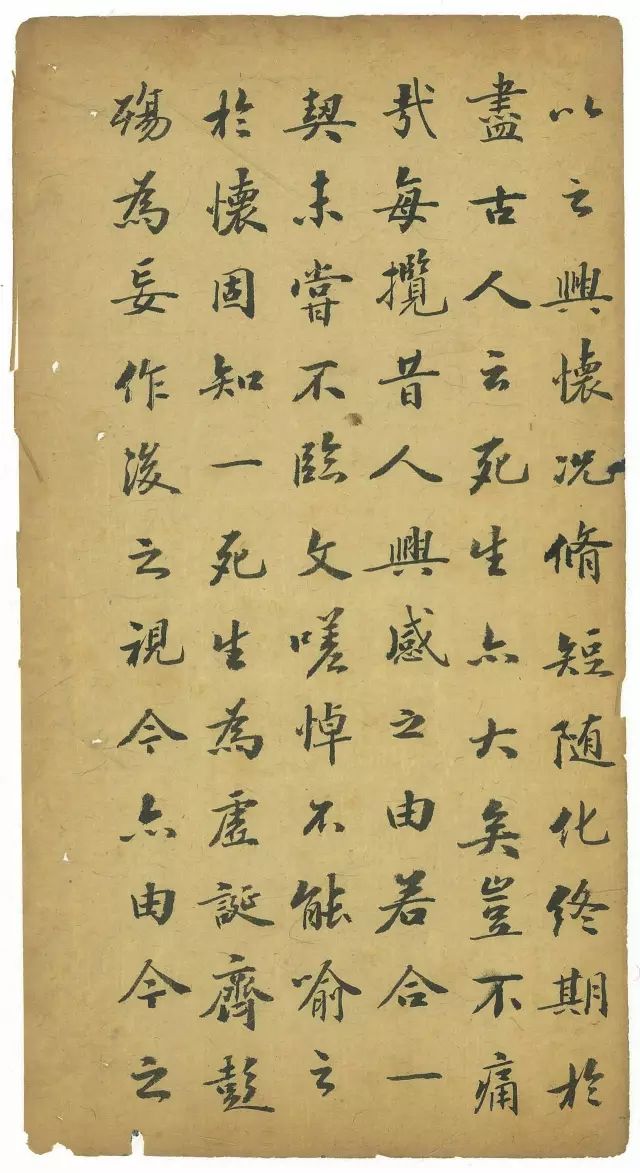 以之興懷況脩短随化終期於
盡古人云死生亦大矣豈不痛
哉每攬昔人興感之由若合一
契未嘗不臨文嗟悼不能喻之
於懷固知一死生為虛誕齊彭
殤為妄作後之視今亦由今之